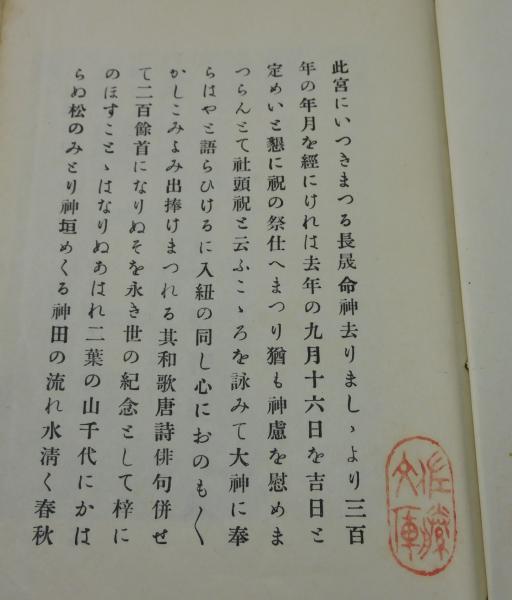 此宮にいつきまつる長晟命神去りまし〻より三百
年の年月を經にけれは去年の九月十六日を吉日と
定めいと懇に祝の祭仕へまつり猶も神慮を慰めま
つらんとて社頭祝と云ふこゝろを詠みて大神に奉
らはやと語らひけるに入紐の同し心におのも〳〵
かしこみよみ出捧けまつれる其和歌唐詩俳句併せ
て二百餘首になりぬそを永き世の紀念として梓に
のほすことゝはなりぬあはれ二葉の山千代にかは
らぬ松のみとり神垣めくる神田の流れ水淸く春秋
文庫